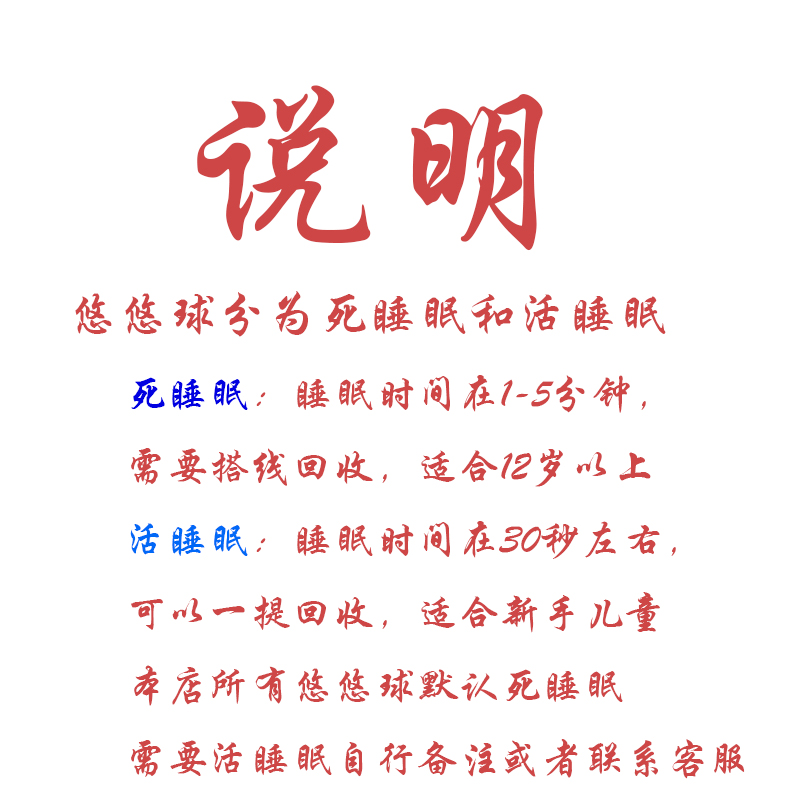 说明
悠悠球分为死睡眠和活睡眠
死睡眠：睡眠时间在1-5分钟，
需要搭线回收，适合12岁以上
活睡眠：睡眠时间在30秒左右，
可以一提回收，适合新手儿童
本店所有悠悠球默认死睡眠
需要活睡眠自行备注或者联系客服